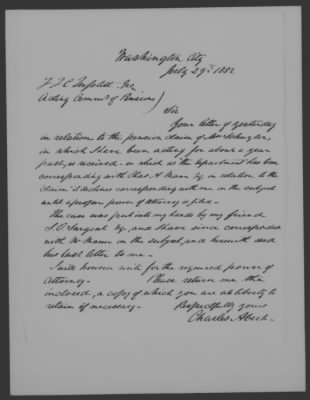 Washington City
July 29th 1852
Esq
Acting Comms of Pensions)
Sir
Your letter of yesterday
in relation to the pension claim of Mrs Schuyler,
in which I have been acting for about a year
past, is received - in which is the Department has been
corresponding with Chas A Mann Esq in relation to the
claim it declines corresponding with me on the subject
until a power of attorney is filed -
The case was put into my hands by my friend
J. O. Sargent Esq, and I have since corresponded
with Mr Mann on the subject, and herewith send
his last letter to me -
I will however write for the required power of
attorney - Please return me the
inclosed, a copy of which you are at liberty to
retain if necessary - Respectfully yours
Charles Abert